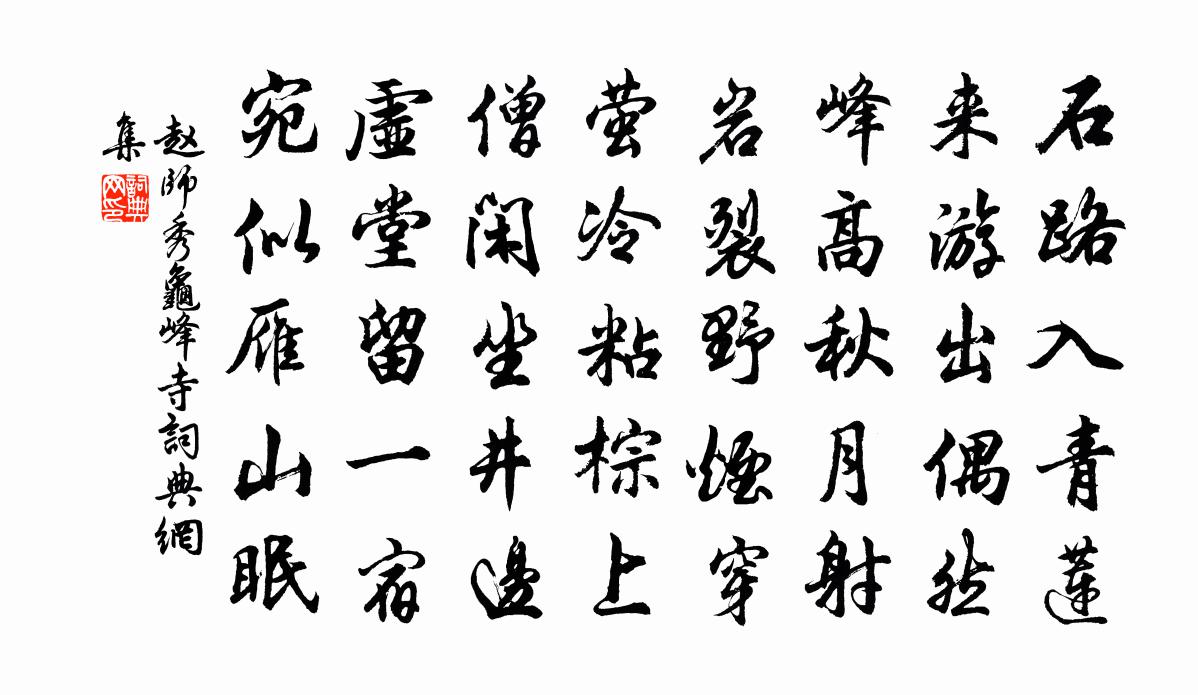 石路入青蓮
来游出偶然
峰高秋月射
岩裂野煙穿
萤冷粘棕上
僧闲坐井邊
虛堂留一宿
宛似雁山眠
赵師秀龜峰寺詞典網
集
詞典
网印